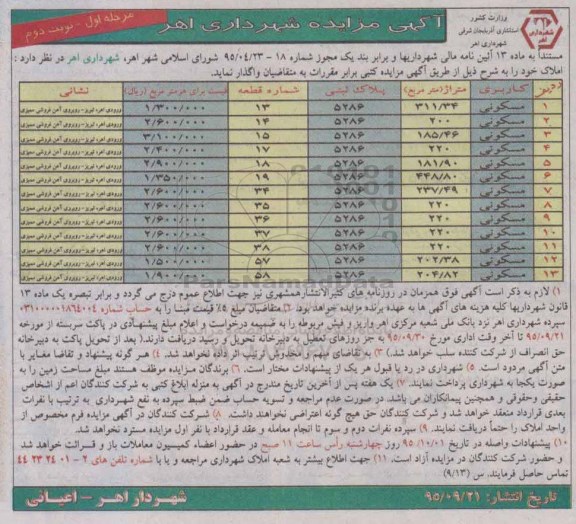 مرحله اول - نوبت دوم
آگهی مزایده شهرداری اهر
وزارت کشور
استانداری آذربایجان شرقی
شهرداری اهر
مستنداً به ماده ۱۳ آئین نامه مالی شهرداریها و برابر بند یک مجوز شماره ۱۸ - ۹۵/۰۴/۲۳ شورای اسلامی شهر اهر، شهرداری اهر در نظر دارد :
املاک خود را به شرح ذیل از طریق آگهی مزایده کتبی برابر مقررات به متقاضیان واگذار نماید.
ردیف کاربری متراژ(متر مربع) پلاک ثبتی شماره قطعه قیمت برای هرمتر مربع (ریال) نشانی
۱ مسکونی ۳۱۱/۳۴ ۵۲۸۶ ۱۳ ۱/۳۰۰/۰۰۰ ورودی اهر- تبریز- روبروی آهن فروشی ممیزی
۲ مسکونی ۲۰۰ ۵۲۸۶ ۱۴ ۲/۶۰۰/۰۰۰ ورودی اهر- تبریز- روبروی آهن فروشی ممیزی
۳ مسکونی ۱۸۵/۴۶ ۵۲۸۶ ۱۵ ۳/۱۰۰/۰۰۰ ورودی اهر- تبریز- روبروی آهن فروشی ممیزی
۴ مسکونی ۲۲۰ ۵۲۸۶ ۱۷ ۲/۴۰۰/۰۰۰ ورودی اهر- تبریز- روبروی آهن فروشی ممیزی
۵ مسکونی ۱۸۱/۹۰ ۵۲۸۶ ۱۸ ۲/۹۰۰/۰۰۰ ورودی اهر- تبریز- روبروی آهن فروشی ممیزی
۶ مسکونی ۴۴۸/۸۰ ۵۲۸۶ ۱۹ ۱/۳۵۰/۰۰۰ ورودی اهر- تبریز- روبروی آهن فروشی ممیزی
۷ مسکونی ۲۳۷/۴۹ ۵۲۸۶ ۳۴ ۲/۶۰۰/۰۰۰ ورودی اهر- تبریز- روبروی آهن فروشی ممیزی
۸ مسکونی ۲۲۰ ۵۲۸۶ ۳۵ ۲/۶۰۰/۰۰۰ ورودی اهر- تبریز- روبروی آهن فروشی ممیزی
۹ مسکونی ۲۲۰ ۵۲۸۶ ۳۶ ۲/۶۰۰/۰۰۰ ورودی اهر- تبریز- روبروی آهن فروشی ممیزی
۱۰ مسکونی ۲۲۰ ۵۲۸۶ ۳۷ ۲/۶۰۰/۰۰۰ ورودی اهر- تبریز- روبروی آهن فروشی ممیزی
۱۱ مسکونی ۲۲۰ ۵۲۸۶ ۳۸ ۲/۶۰۰/۰۰۰ ورودی اهر- تبریز- روبروی آهن فروشی ممیزی
۱۲ مسکونی ۲۰۲/۳۸ ۵۲۸۶ ۵۷ ۱/۵۰۰/۰۰۰ ورودی اهر- تبریز- روبروی آهن فروشی ممیزی
۱۳ مسکونی ۲۰۴/۸۲ ۵۲۸۶ ۵۸ ۱/۹۰۰/۰۰۰ ورودی اهر- تبریز- روبروی آهن فروشی ممیزی
ParsNamadData
۱) لازم به ذکر است آگهی فوق همزمان در روزنامه های کثیرالانتشارهمشهری نیز جهت اطلاع عموم درج می گردد و برابر تبصره یک ماده ۱۳
قانون شهرداریها کلیه هزینه های آگهی ها به عهده برنده مزایده خواهد بود. ۲) متقاضیان مبلغ ۵٪ قیمت مبنا را به حساب شماره ۰۳۱۰۰۰۰۰۱۸۶۴۰۰۴
سپرده شهرداری اهر نزد بانک ملی شعبه مرکزی اهر واریز و فیش مربوطه را به ضمیمه درخواست و اعلام مبلغ پیشنهادی در پاکت سربسته از مورخه
۹۵/۰۹/۲۱ تا آخر وقت اداری مورخ ۹۵/۰۹/۳۰ به جز روزهای تعطیل به دبیرخانه تحویل و رسید دریافت دارند.( بعد از تحویل پاکت به دبیرخانه
حق انصراف از شرکت کننده سلب خواهد شد.) ۳) به تقاضای مبهم و مخدوش ترتیب اثر داده نخواهد شد. ۴) هر گونه پیشنهاد و تقاضا مغایر با
متن آگهی مردود است. ۵) شهرداری در رد یا قبول هر یک از پیشنهادات مختار است. ۶) برندگان مزایده موظف هستند مبلغ مساحت زمین را به
صورت یکجا به شهرداری پرداخت نمایند. ۷) یک هفته پس از آخرین تاریخ مندرج در آگهی به منزله ابلاغ کتبی به شرکت کنندگان اعم از اشخاص
حقیقی وحقوقی و همچنین پیمانکاران می باشد. در صورت عدم مراجعه و تسویه حساب ضمن ضبط سپرده به نفع شهرداری به ترتیب با نفرات
بعدی قرارداد منعقد خواهد شد و شرکت کنندگان حق هیچ گونه اعتراضی نخواهند داشت. ۸) شرکت کنندگان در آگهی مزایده فرم مخصوص از
واحد املاک را حتماً دریافت نمایند. ۹) سپرده نفرات دوم و سوم تا انجام معامله و عقد قرارداد با نفر اول مزایده مسترد نخواهد شد.
۱۰) پیشنهادات واصله در تاریخ ۹۵/۱۰/۰۱ روز چهارشنبه رأس ساعت ۱۱ صبح در حضور اعضاء کمیسیون معاملات باز و قرائت خواهد شد
و حضور شرکت کنندگان در مزایده آزاد است. ۱۱) جهت اطلاع بیشتر به شعبه املاک شهرداری مراجعه و یا با شماره تلفن های ۲ - ۰۱ ۲۴ ۲۳ ۴۴
تماس حاصل فرمایند. س (۹/۱۳)
تاریخ انتشار: ۹۵/۰۹/۲۱
شهردار اهر - اعیانی